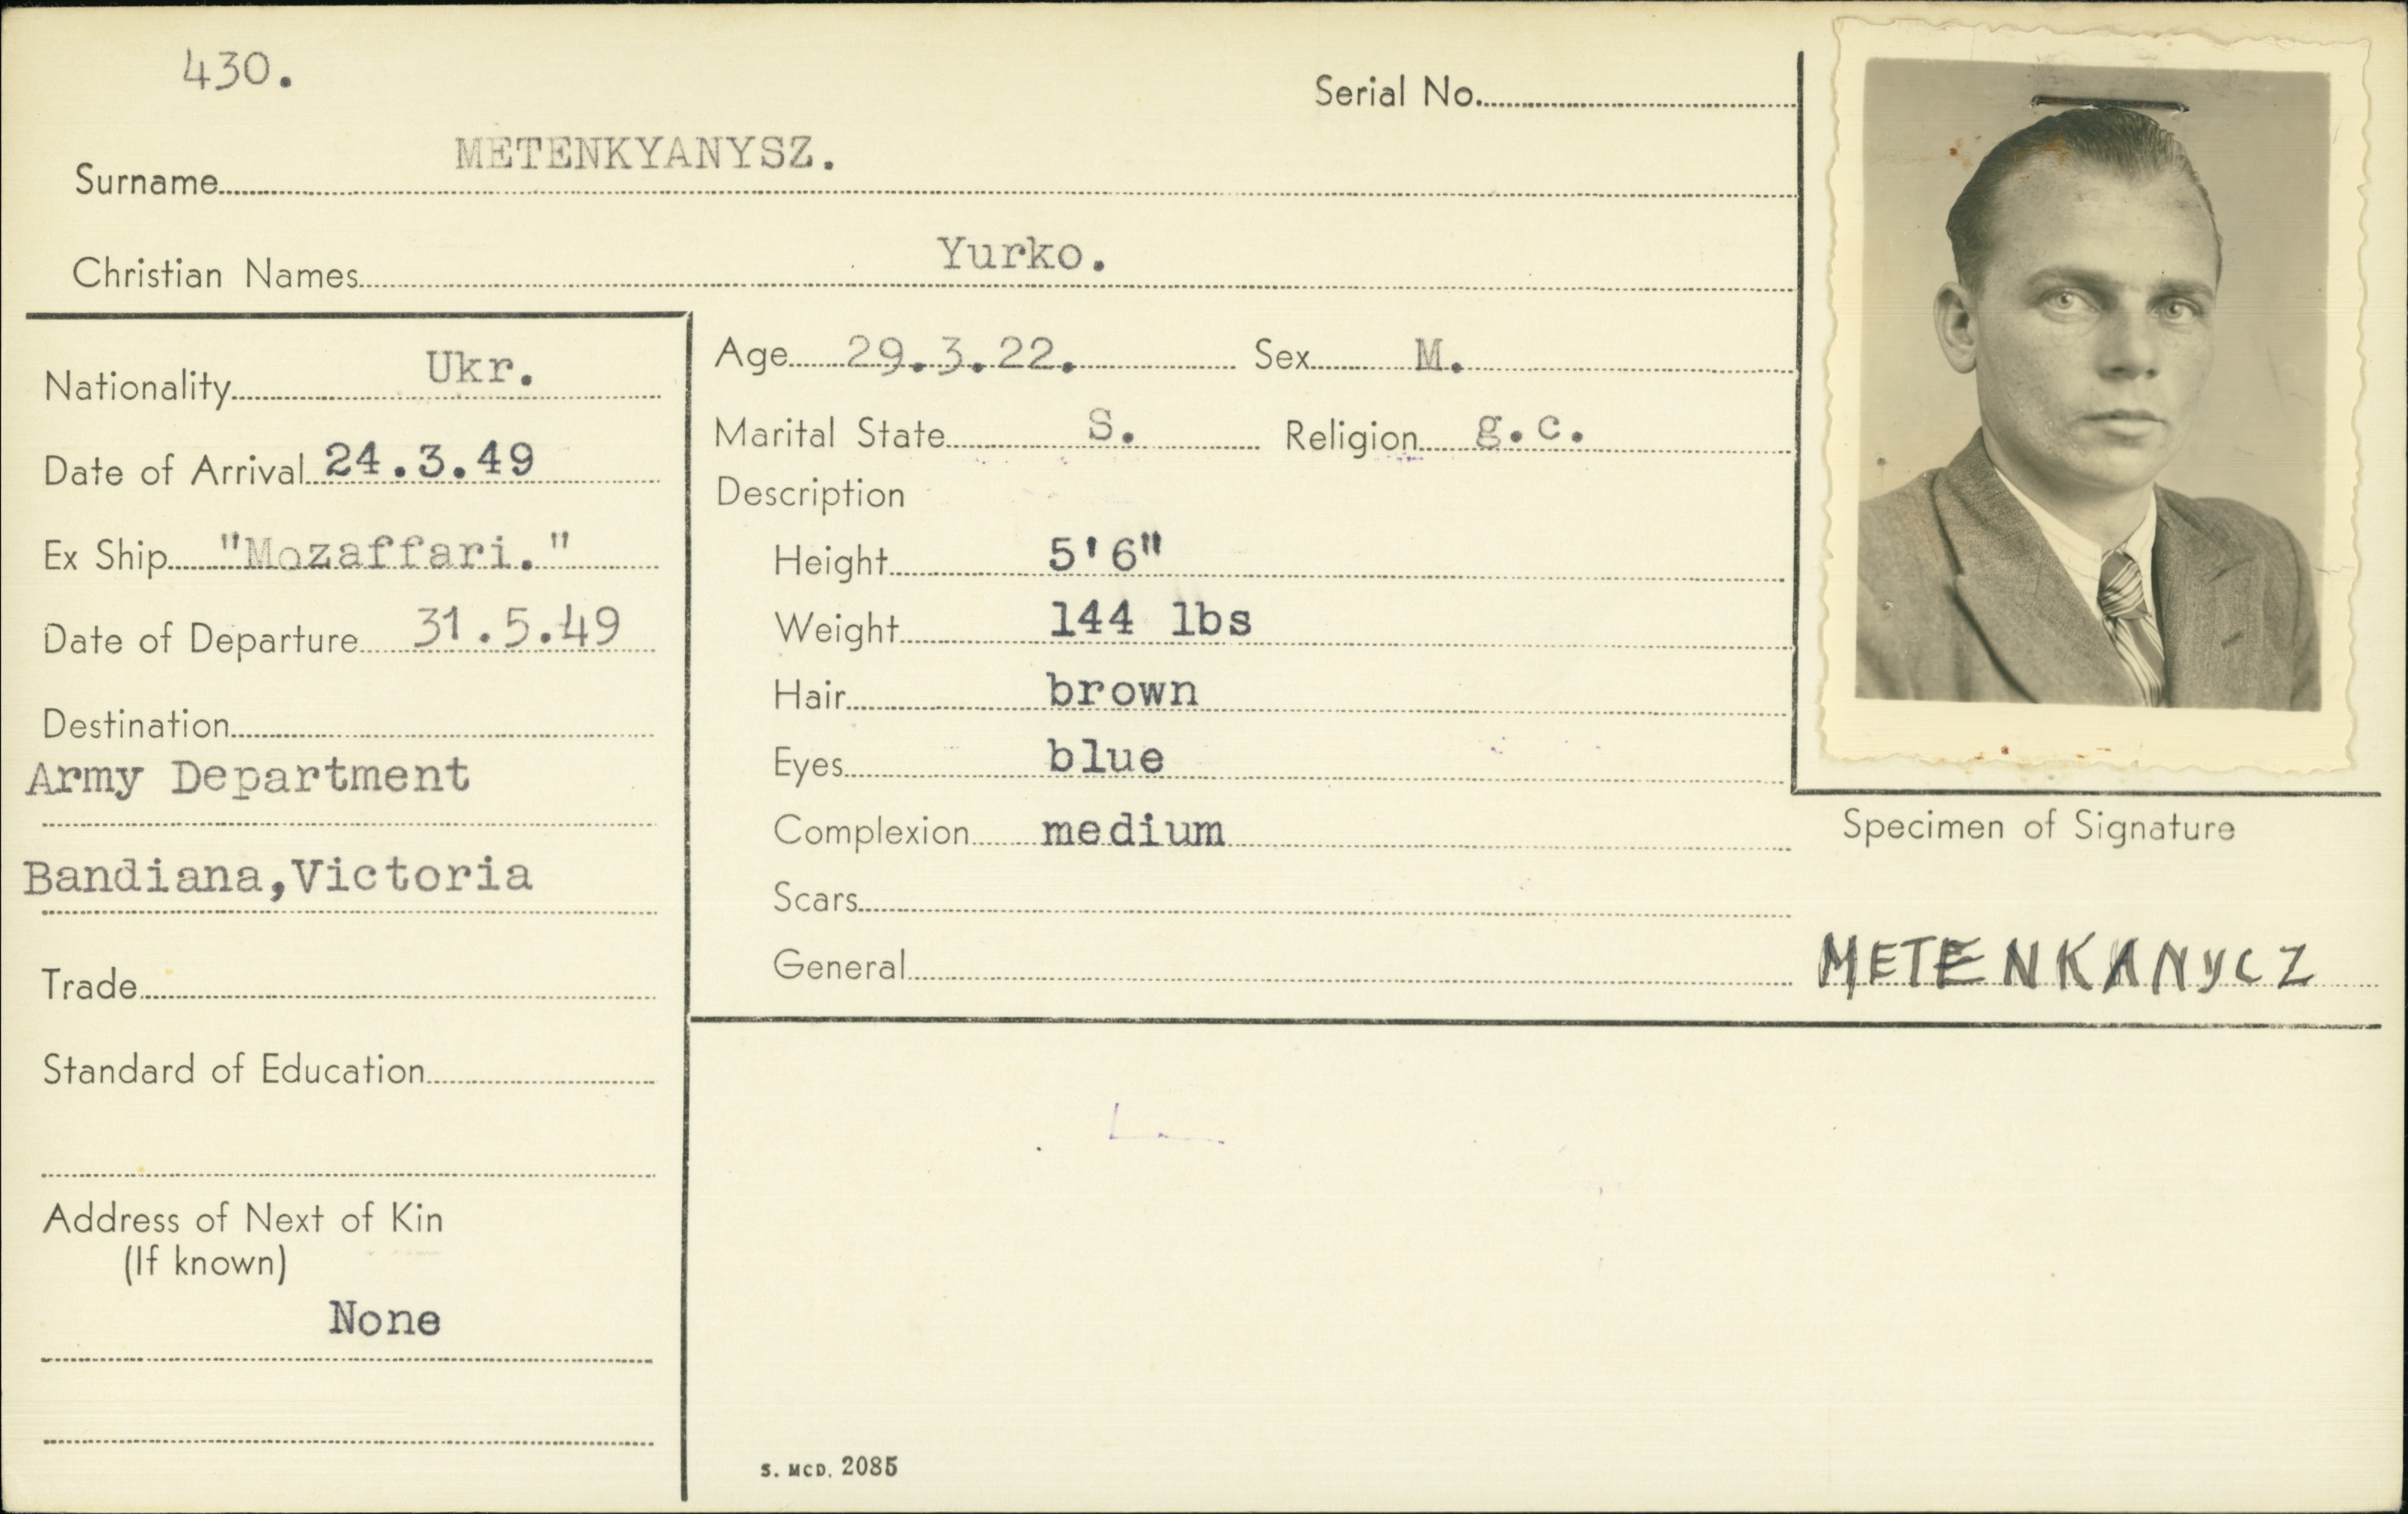 430.
Serial No.
Surname METENKYANYSZ.
Christian Names Yurko.
Nationality Ukr.
Date of Arrival 24.3.49
Ex Ship "Mozaffari."
Date of Departure 31.5.49
Destination
Army Department
Bandiana,Victoria
Trade
Standard of Education
Address of Next of Kin
(If known)
None
Age 29.3.22. Sex M.
Marital State S. Religion g.c.
Description
Height 5'6"
Weight 144 lbs
Hair brown
Eyes blue
Complexion medium
Scars
General
Specimen of Signature
METENKANYCZ
S. MCD. 2085